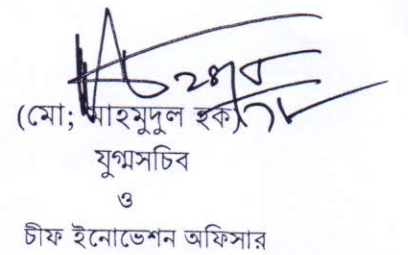 (মো; মাহমুদুল হক)
যুগ্মসচিব
ও
চীফ ইনোভেশন অফিসার